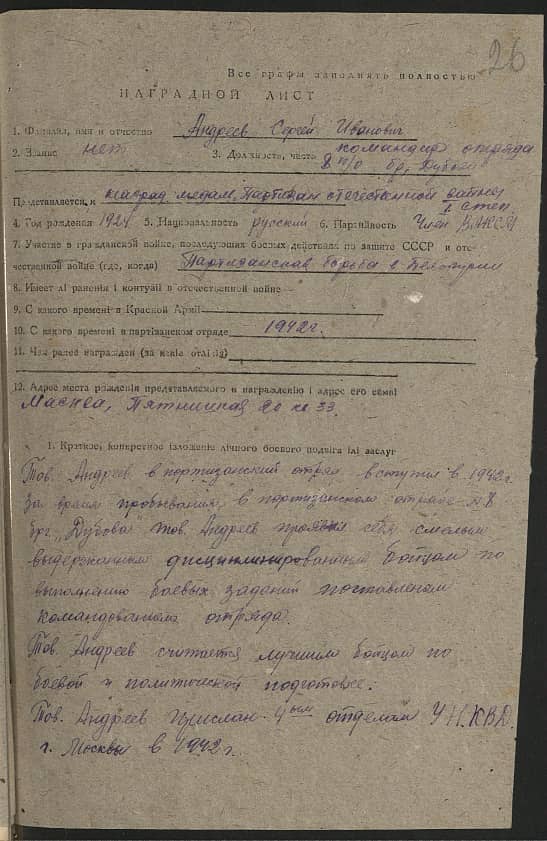 26
Все графы заполнять полностью
НАГРАДНОЙ ЛИСТ
1. Фамилия, имя и отчество Андреев Сергей Иванович
2. Звание нет 3. Должность, часть командир отряда
8 п/о бр. Дубова
Представляется к наград. медал. Партизан отечественной войны
I степ.
4. Год рождения 1924 5. Национальность русский 6. Партийность Член ВЛКСМ
7. Участие в гражданской войне, последующих боевых действиях по защите СССР и оте-
чественной войне (где, когда) Партизанская борьба в Белоруссии
8. Имеет лі ранения і контузіи в отечественной войне
9. С какого времени в Красной Армії
10. С какого времени в партізанском отряде 1942 г.
11. Чем ранее награжден (за какіе отлічія)
12. Адрес места рожденія представляемого к награжденію і адрес его семьі
Москва, Пятницкая 20 кв 33.
1. Краткое, конкретное ізложеніе лічного боевого подвіга ілі заслуг
Тов. Андреев в портизанский отряд вступил в 1942 г.
За время пробывания в портизанском отряде №8
брг. Дубова тов. Андреев проявил себя смелым
выдержанным дисциплинированным бойцом по
выполнению боевых заданий поставленом
командованием отряда.
Тов. Андреев считается лучшим бойцом по
боевой и политической подготовке.
Тов. Андреев 4ым отделом У.Н.К.В.Д.
г. Москвы в 1942 г.